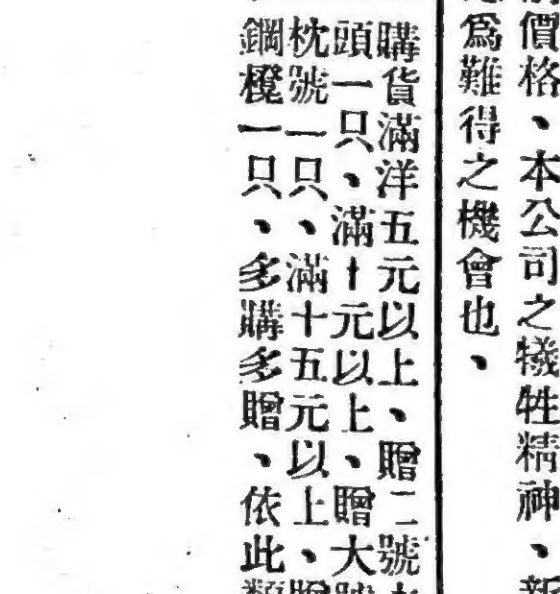 價格、本公司之犧牲精神、新
爲難得之機會也、
購貨滿洋五元以上、贈二號
頭一只、滿十元以上、贈大號
枕號一只、滿十五元以上、贈
鋼櫈一只、多購多贈、依此類